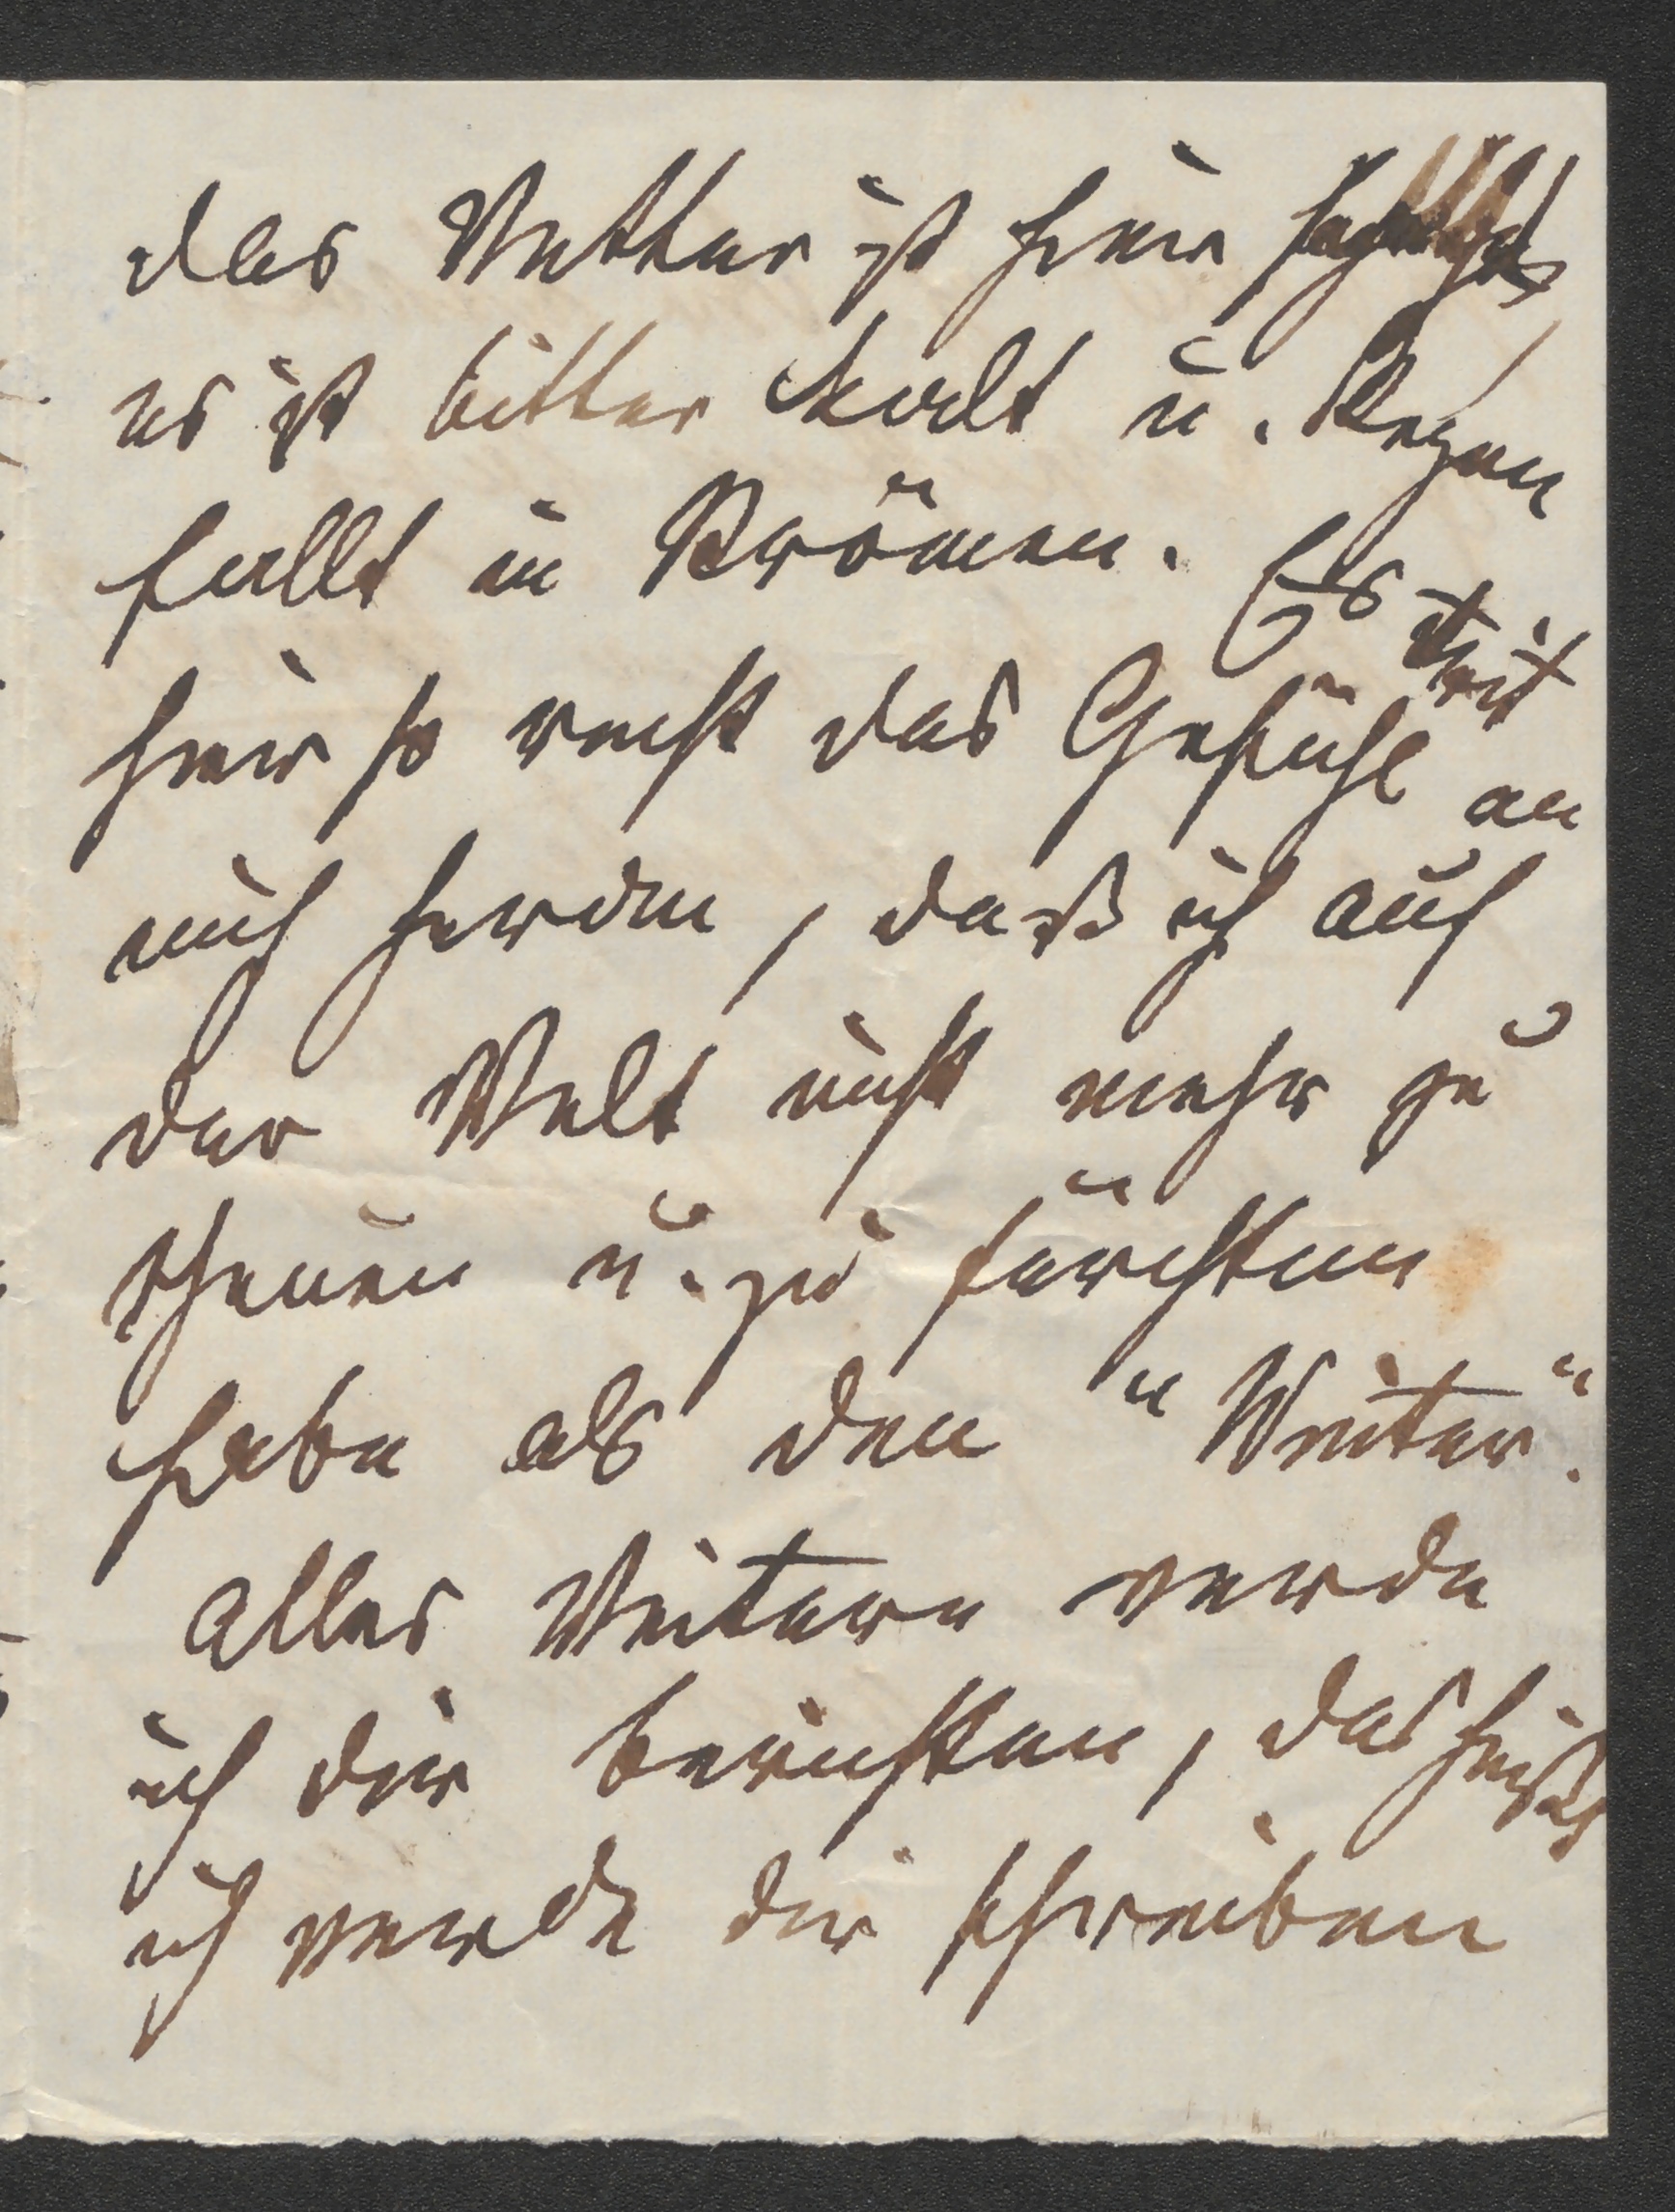 das Wetter ist hier
es ist bitter kalt u. Regen
fällt in Strömen. Es trit
hier so recht das Gefühl an
mich heran, daß ich auf
der Welt nicht mehr zu
thuen u. zu fürchten
habe als den "Weiter".
Alles Weitere werde
ich dir berichten, das heißt
ich werde dir schreiben